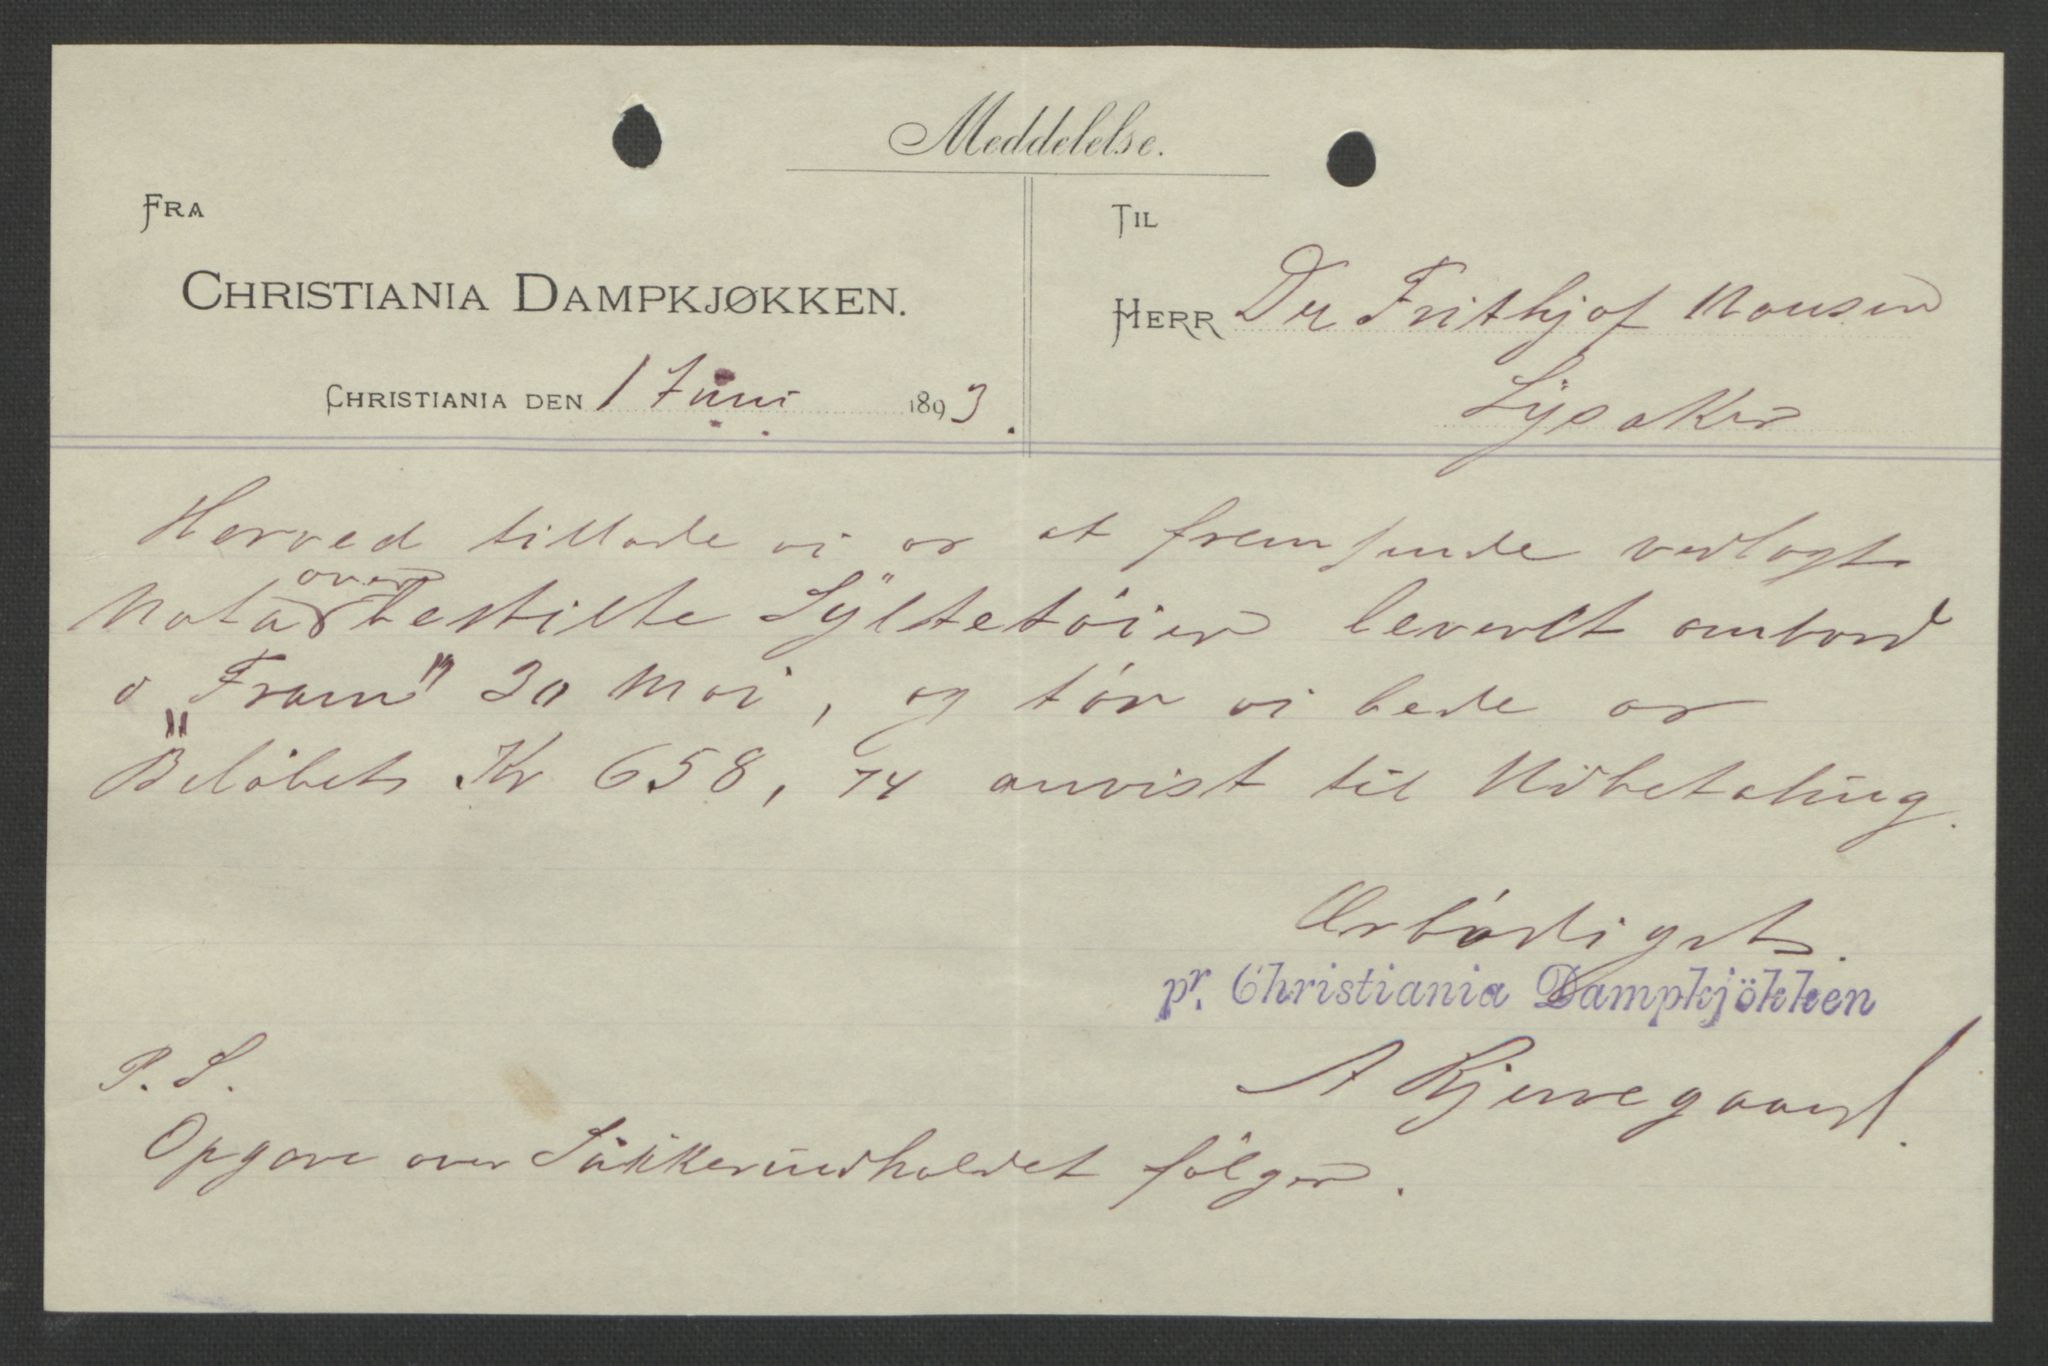 Meddelelse.
FRA
CHRISTIANIA DAMPKJØKKEN.
CHRISTIANIA DEN 1 Juni 1893.
TIL
HERR Dr Frithjof Nansen
Lysaker
Herved tillade vi os at fremsende vedlagt
Nota over bestilte Syltetøier leveret ombord
i „Fram" 30 Mai, og tør vi bede os
Beløbet Kr 658,74 anvist til Udbetaling.
Ærbødigst.
pr. Christiania Dampkjökken
A Bjerregaard.
P.S.
Opgave over Sukkerindholdet følger.